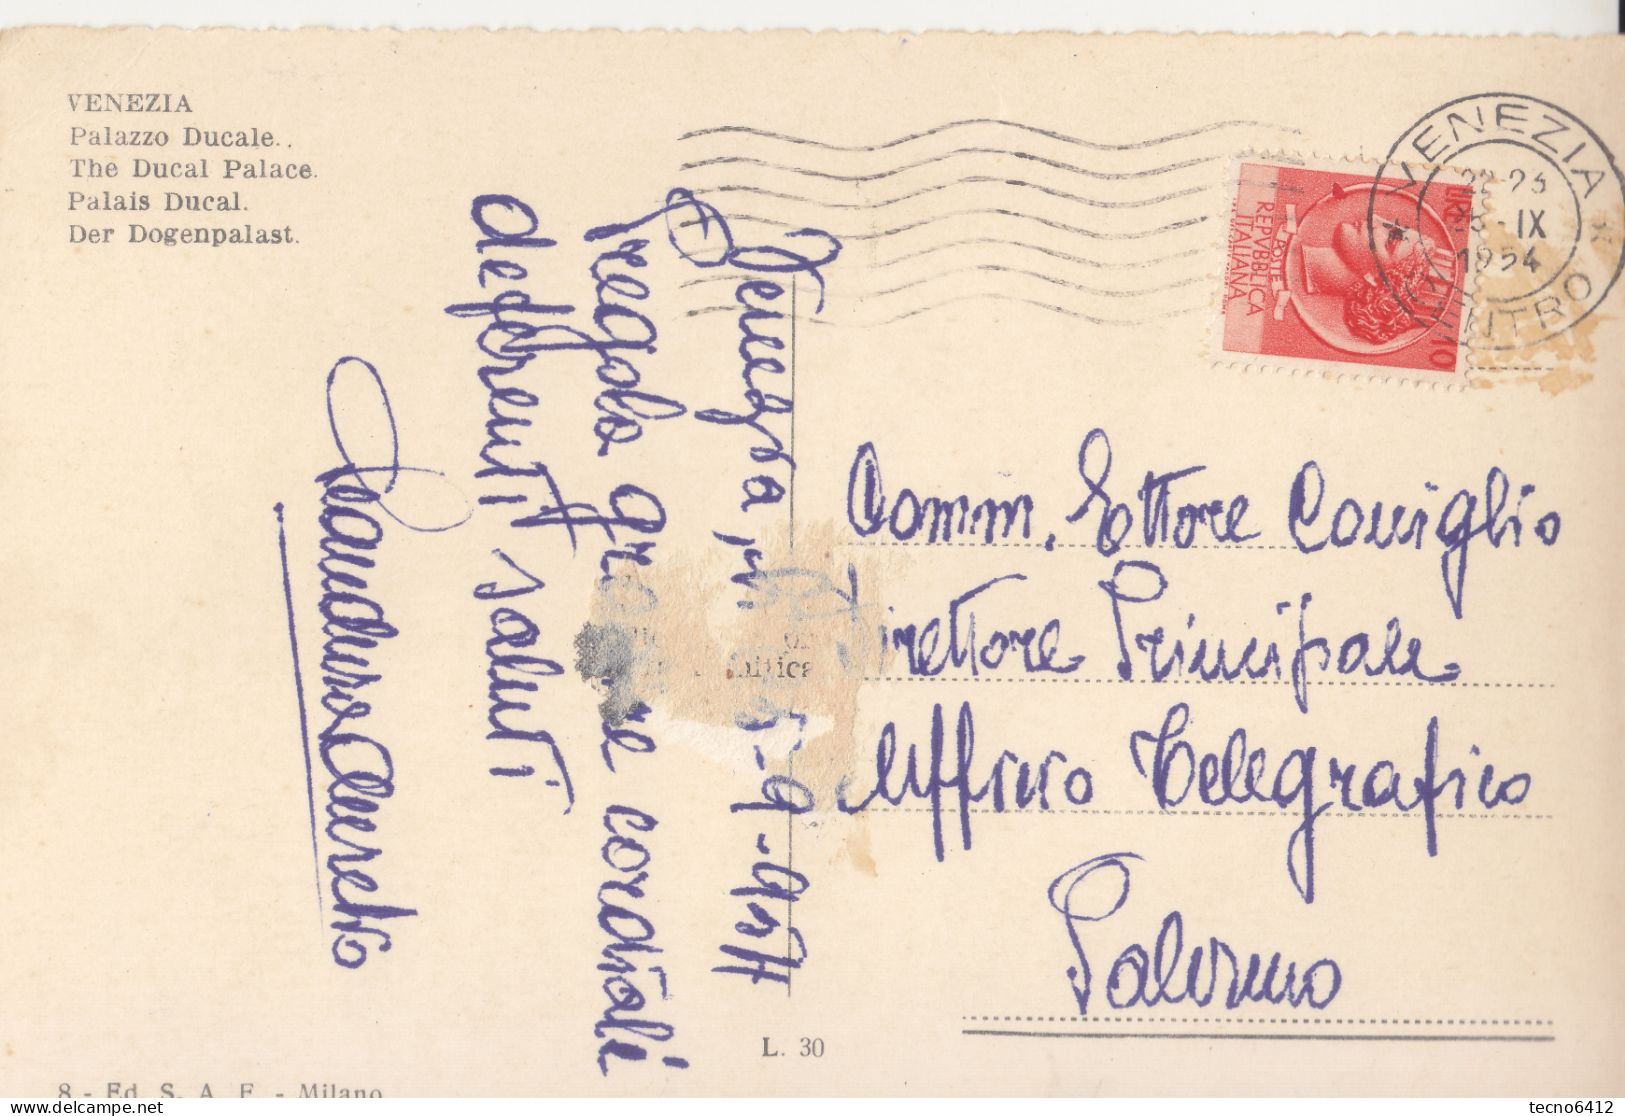 VENEZIA
Palazzo Ducale..
The Ducal Palace.
Palais Ducal.
Der Dogenpalast.
VENEZIA
CENTRO
22-23
-IX
1954
POSTE
REPVBBLICA
ITALIANA
LIRE
10
Venezia, 9-954
pregola gradire cordiali
deferenti saluti
Comm. Ettore Coniglio
Direttore Principale
Ufficio Telegrafico
Salerno
L. 30
8 - Ed. S. A. F. - Milano
tecno6412